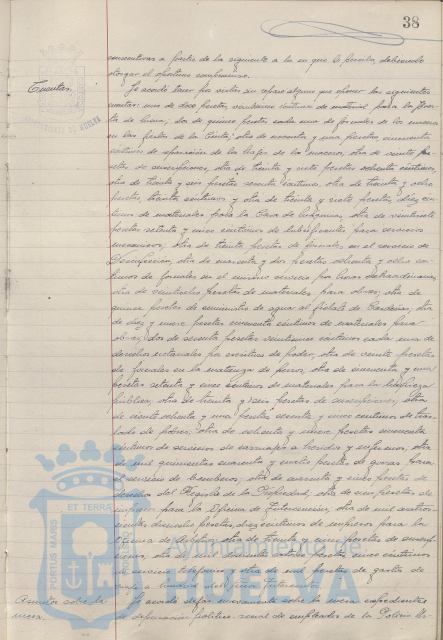 38
consecutivas a partir de la siguiente a la en que le perciba, debiendo
otorgar el oportuno compromiso.
Cuentas.
Se acordó haber por vistas sin reparo alguno que oponer las siguientes
cuentas: una de doce pesetas, veinticinco céntimos de material para la
de dos de quince pesetas cada una de jornales de los maceros
en las fiestas de la Cinta; otra de noventa y una pesetas cincuenta
céntimos de reparación de los trajes de los maceros, otra de veinte pe-
setas de suscripciones, otra de treinta y siete pesetas ochenta céntimos,
otra de treinta y seis pesetas sesenta céntimos, otra de treinta y ocho
pesetas, treinta céntimos y otra de treinta y siete pesetas, diez cén-
timos de materiales para la Casa de Socorro, otra de veintisiete
pesetas setenta y cinco céntimos de lubrificantes para servicios
mecánicos, otra de treinta pesetas de jornales en el servicio de
Desinfección, otra de cuarenta y dos pesetas ochenta y ocho cén-
timos de jornales en el mismo servicio por horas extraordinarias,
otra de pesetas de materiales para obras, otra de
quince pesetas de suministro de agua al fielato de Cardeñas, otra
de diez y nueve pesetas cincuenta céntimos de materiales para
obras, dos de sesenta pesetas veinticinco céntimos cada una de
derechos notariales por escrituras de poder, otra de veinte pesetas
de jornales en la matanza de perros, otra de cincuenta y una
pesetas setenta y cinco céntimos de materiales para la limpieza
pública, otra de treinta y seis pesetas de suscripciones, otra
de ciento ochenta y una pesetas sesenta y cinco céntimos de tras-
lado de pobres, otra de ochenta y nueve pesetas cincuenta
céntimos de servicios de carruajes a heridos y enfermos, otra
de mil quinientas cuarenta y cuatro pesetas de gomas para
el servicio de Bomberos, otra de cuarenta y cinco pesetas de
derechos del Registro de la Propiedad, otra de cien pesetas de
impresos para la Oficina de Intervención, otra de mil cuatro-
cientas dieciocho pesetas, diez céntimos de impresos para la
Oficina de Arbitrios, otra de treinta y cinco pesetas de suscrip-
ciones, otra de pesetas cinco céntimos
de servicio telefónico, otra de mil pesetas de gastos de
Asuntos sobre la
mesa.
Se acordó dejar nuevamente sobre la mesa expedientes
de depuración político-social de empleados de la Policía Ur-
PORTUS MARIS ET TERRAE
Ayuntamiento de
HUELVA